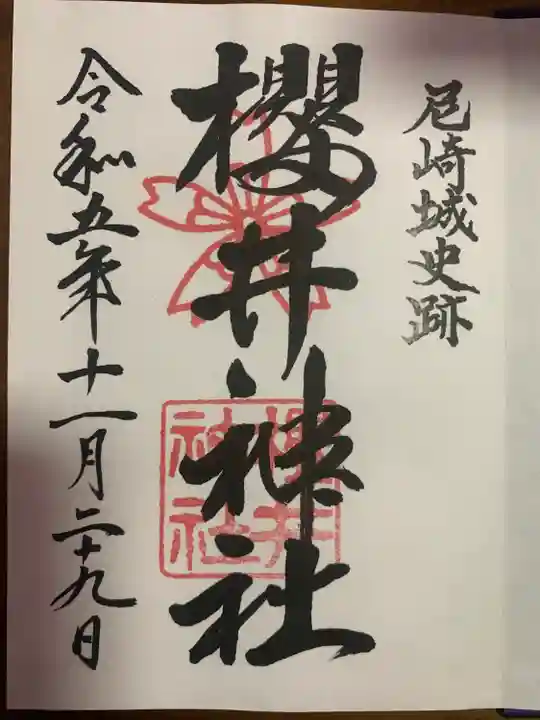 尼崎城史跡
櫻井神社
櫻井
神社
令和五年十一月二十九日